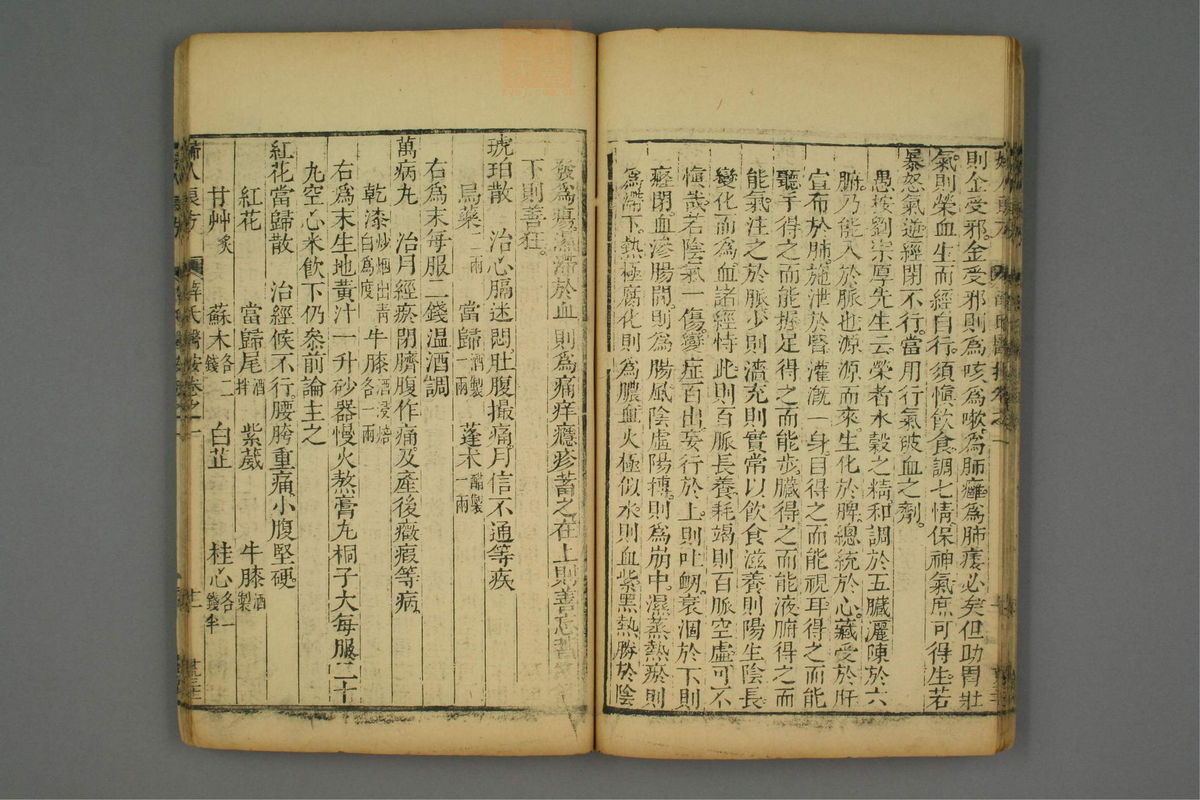 則金受邪金受邪則為咳為嗽為肺癰為肺痿必矣但助胃壯
氣則榮血生而經自行須慎飲食調七情保神氣庶可得生若
暴怒氣逆經閉不行當用行氣破血之劑
愚按劉宗厚先生云榮者水穀之精和調於五臟灑陳於六
腑乃能入於脈也源源而來生化於脾總統於心藏受於肝
宣布於肺施泄於腎灌溉一身目得之而能視耳得之而能
聽手得之而能握足得之而能步臟得之而能液腑得之而
能氣注之於脈少則濇充則實常以飲食滋養則陽生陰長
變化而為血諸經恃此則百脈長養耗竭則百脈空虛可不
慎哉若陰氣一傷變症百出妄行於上則吐衂衰涸於下則
虛勞
痓閉血滲腸間則為腸風陰虛陽搏則為崩中濕蒸熱瘀則
為滯下熱極腐化則為膿血火極似水則血紫黑熱勝於陰
發為瘍濕滯於血則為痛痒癮疹蓄之在上則善忘蓄之在
下則善狂
琥珀散 治心膈迷悶肚腹撮痛月信不通等疾
烏藥二兩 當歸酒製一兩 蓬朮醋製一兩
右為末每服二錢溫酒調
萬病丸 治月經瘀閉臍腹作痛及產後癥瘕等病
乾漆炒烟出青白為度 牛膝酒浸焙各一兩
右為末生地黃汁一升砂器慢火熬膏丸桐子大每服二十
丸空心米飲下仍叅前論主之
紅花當歸散 治經候不行腰胯重痛小腹堅硬
紅花 當歸尾酒拌 紫葳 牛膝酒製
甘艸炙 蘇木各二錢 白芷 桂心各一錢半
婦人良方 薛氏醫按卷之一